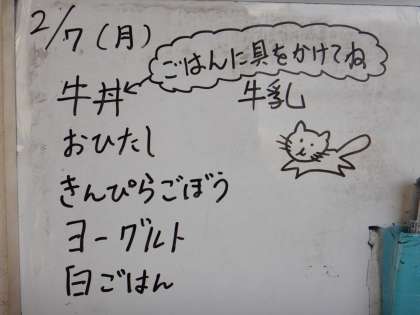 2/7(月)
ごはんに具をかけてね
牛丼
牛乳
おひたし
きんぴらごぼう
ヨーグルト
白ごはん